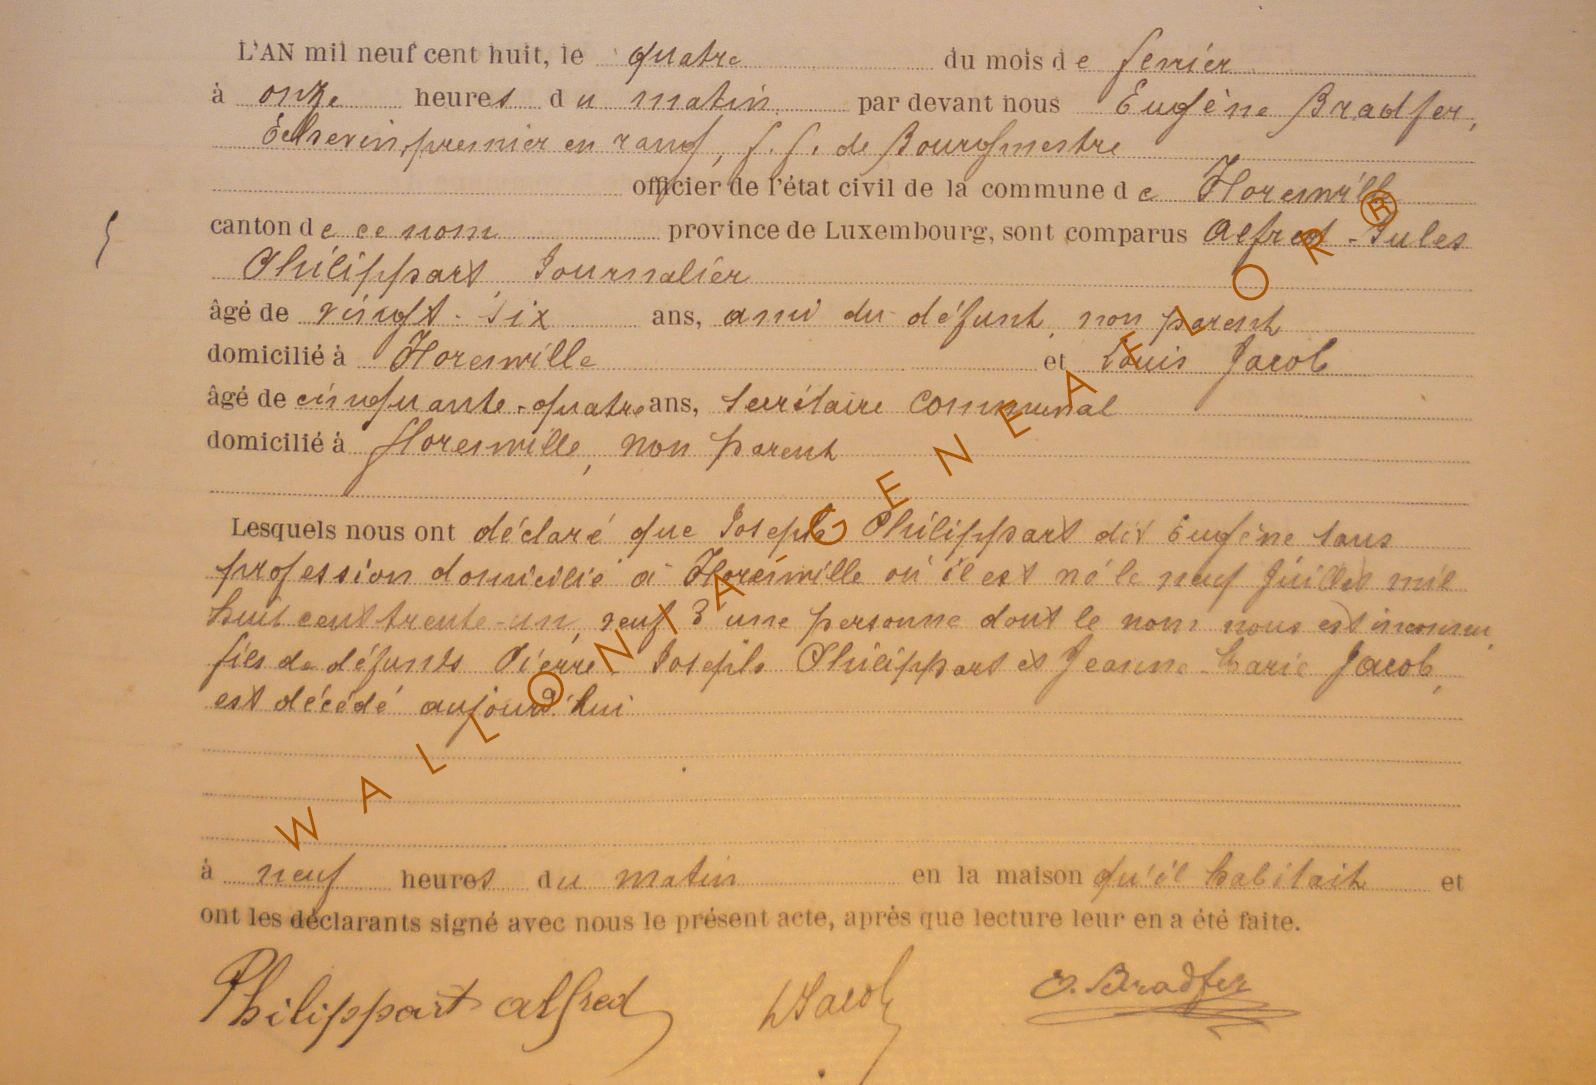 L'AN mil neuf cent huit, le quatre du mois de fevrier
à onze heures du matin par devant nous Eugène Bradfer,
Echevin, premier en rang, f. f. de Bourgmestre
officier de l'état civil de la commune de Florenville
canton de ce nom province de Luxembourg, sont comparus Alfred-Jules
Philippart, Journalier
âgé de vingt-six ans, ami du défunt, non parent
domicilié à Florenville et Louis Jacob
âgé de cinquante-quatre ans, Secrétaire communal
domicilié à Florenville, non parent
Lesquels nous ont déclaré que Joseph Philippart dit Eugène sans
profession domicilié à Florenville où il est né le neuf Juillet mil
huit cent trente-un, veuf d'une personne dont le nom nous est inconnu,
fils de défunts Pierre-Joseph Philippart et Jeanne-Marie Jacob,
est décédé aujourd'hui
à neuf heures du matin en la maison qu'il habitait et
ont les déclarants signé avec nous le présent acte, après que lecture leur en a été faite.
Philippart Alfred LJacob E. Bradfer
WALLONIA GENEAELOR ®